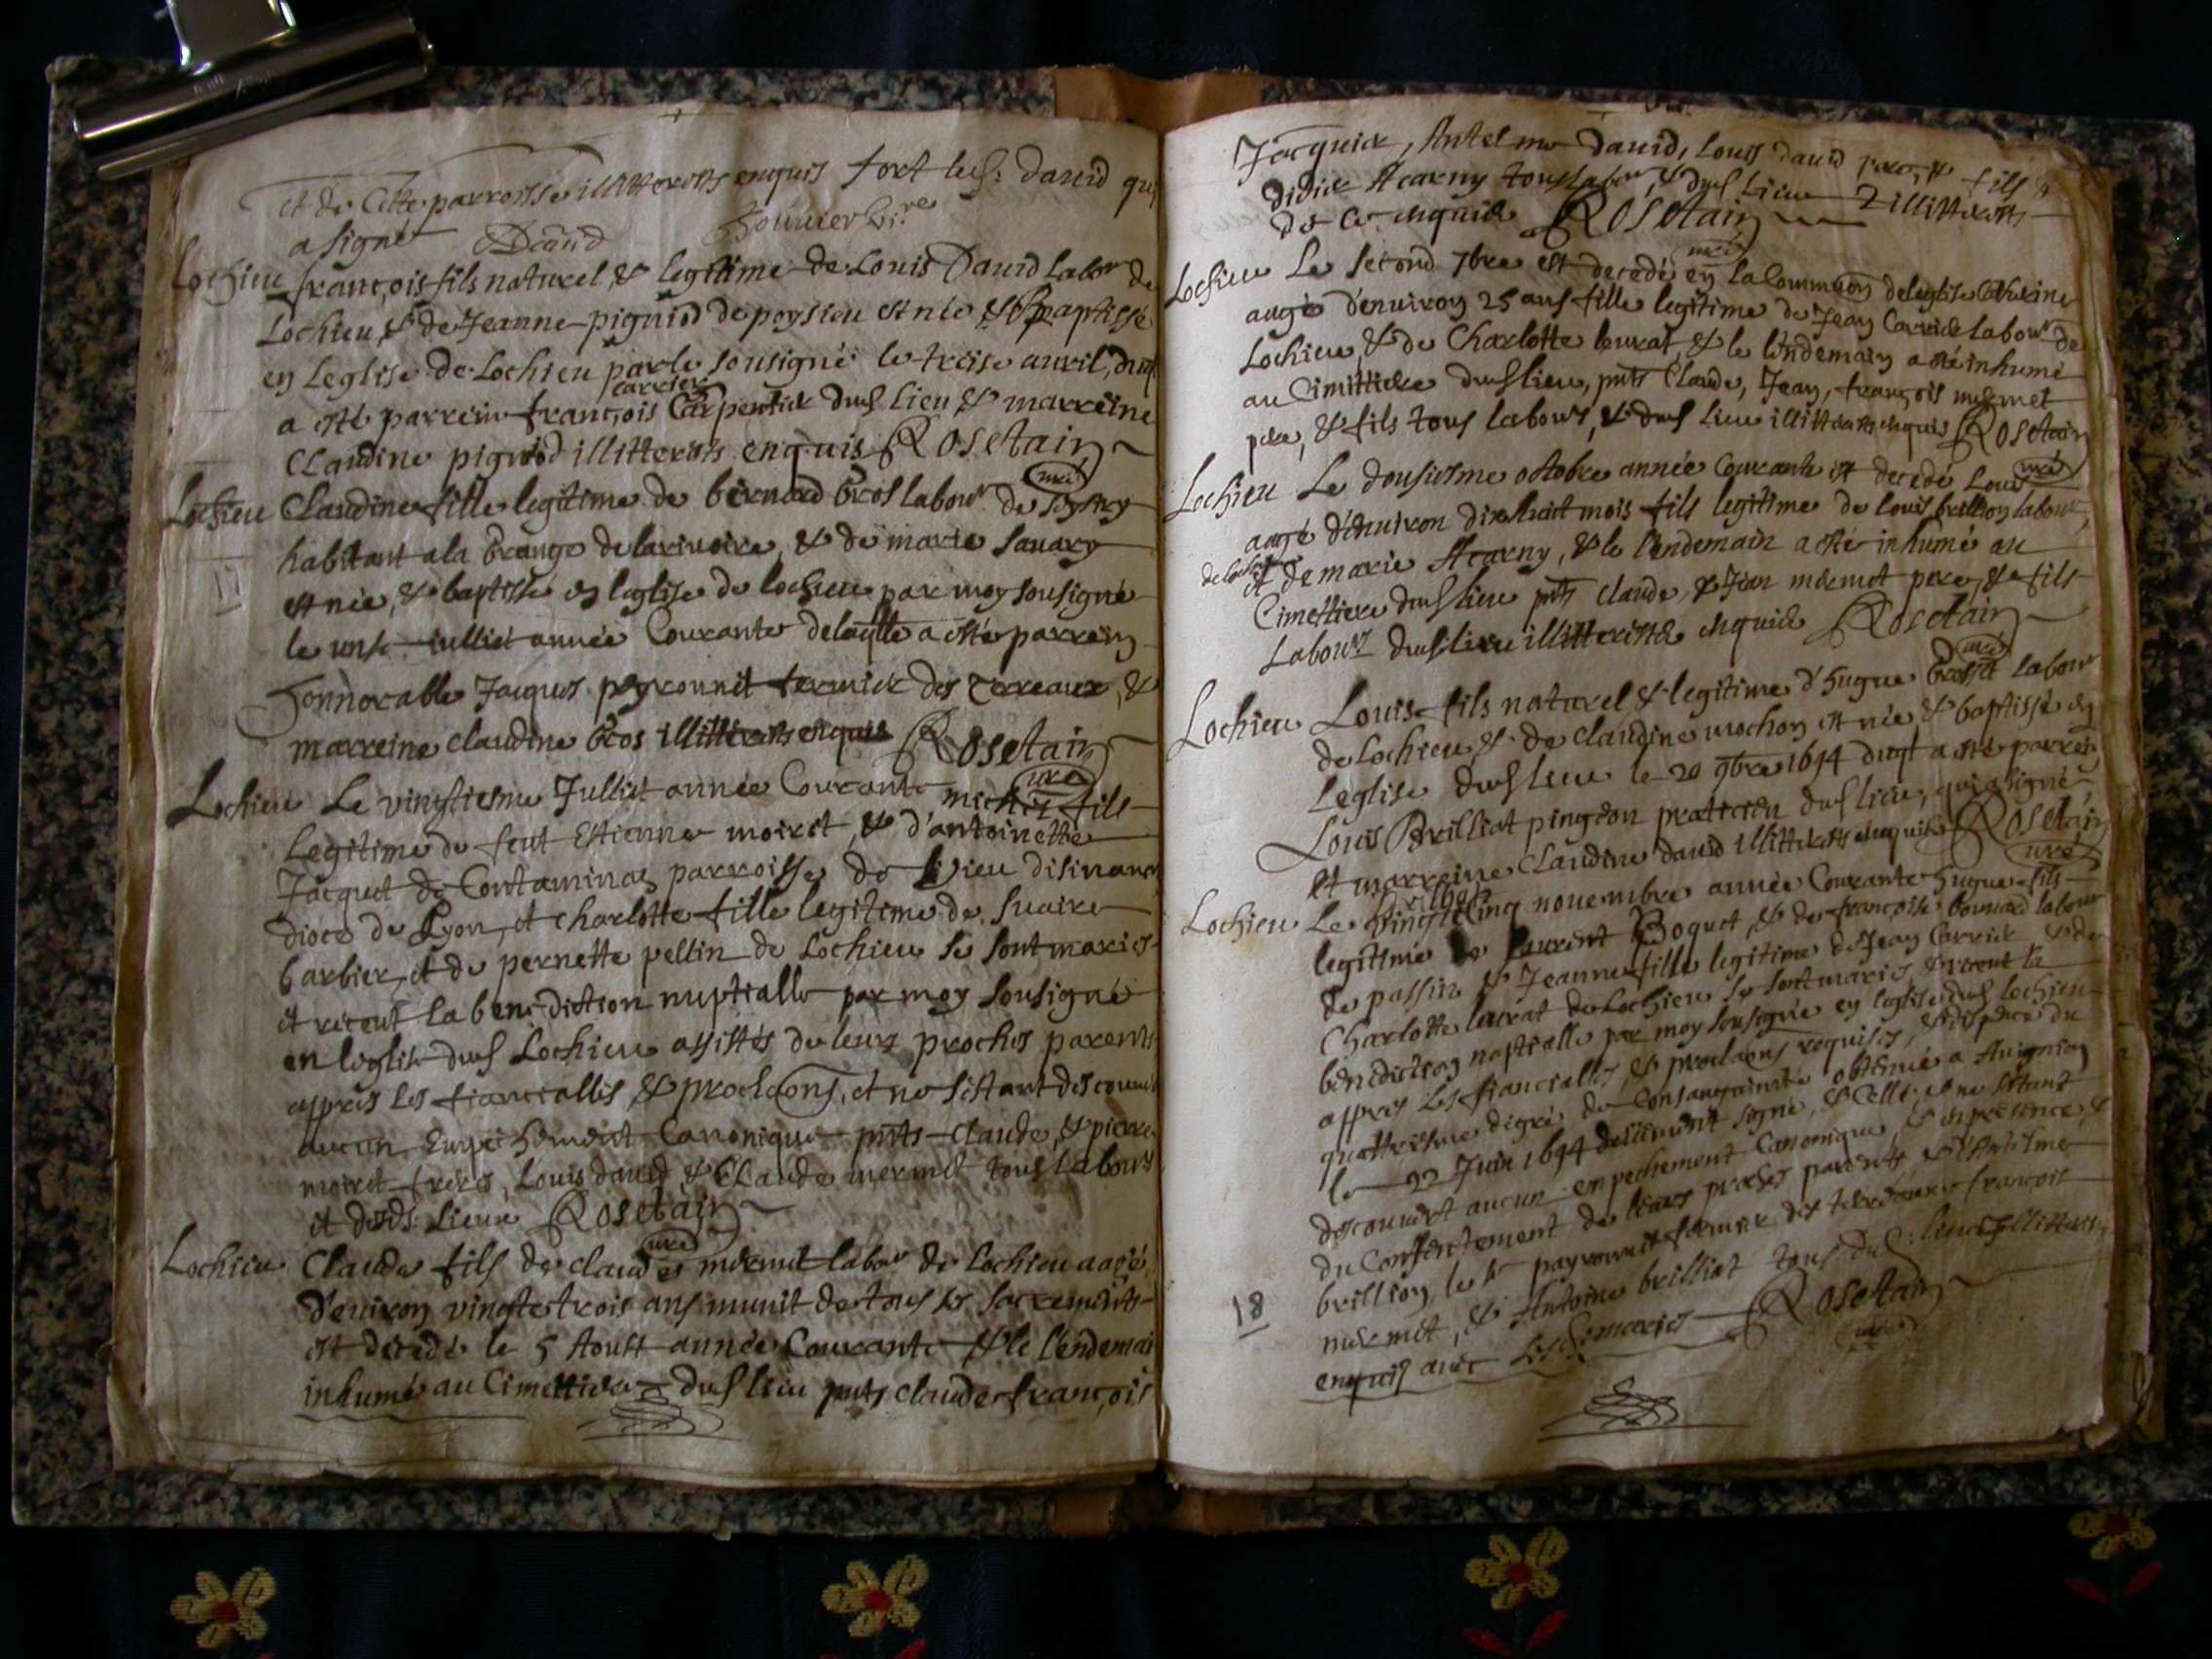 et de Cette parroisse illitterés enquis fort led: David qui
a signé David Bouvier Vi.re
Lochieu françois fils naturel & legitime de Louis David labor de
Lochieu & de Jeanne pignod de poysieu est née & Baptissé
en Leglise de Lochieu par le sousigné le treise auril, duql
carrier
a esté parrein françois Carpentier dud Lieu & marreine
CLaudine pignod illitterats enquis Rosetain
curé
Lochieu Claudine fille legitime de bernard Gros labour de
habitant a la Grange de lariuoire, & de marie Sauary
est née, & baptisse en leglise de lochieu par moy sousigné
le unse iulliet année Courante delaqlle a esté parrein
honnorable Jacques peyronnet fermier des terreaux, &
marreine claudine Gros illitterats enquis Rosetain
curé
Lochieu Le vingtiesme Julliet année Courante michel fils
Legitime de feut Estienne moiret, & d'antoinette
Jacquet de Contaminaz parroisse de Vieu disinaue
dioce de Lyon, et charlotte fille legitime de Suaire
barbier, et de pernette pellin de Lochieu se sont mariés
et receut la benediction nuptialle par moy sousigné
en leglise dud Lochieu assistés de leurs proches parents
appres les fiancialles & proclaons, et ne s'estant descouuert
aucun Empechement Canonique pnts claude, & pierre
moiret freres, Louis david & CLaude mermet tous labours
et desds: lieux Rosetain
curé
Lochieu Claude fils de claude mermet labor de Lochieu aagé
d'enuiron vingtetrois ans munit de tous les sacrements
est decedé le 5 Aoust année Courante & le l'endemai
inhumé au Cimettiere dud lieu pnts claude françois
Jacquier, Antelme David, Louis David pere, & fils
didier Acarny tous labour, & dud Lieu illitterats
de ce enquis Rosetain
curé
Lochieu Le second 7bre est decedé en la Commuon de leglise Catherine
augé d'enuiron 25 ans fille legitime de Jean Carrier labour de
Lochieu, & de Charlotte leurat, & le l'endemain a esté inhumé
au Cimittiere dud lieu, pnts Claude, Jean, françois mermet
pere, & fils tous labours, & dud lieu illitterats enquis Rosetain
curé
Lochieu Le dousiesme octobre année Courante est decedé Louis
augé d'enuiron dixhuit mois fils legitime de louis brillion labour
de Lochieu
et de marie Acarny, & le l'endemain a esté inhumé au
Cimettiere dud lieu pnts claude, & Jean mermet pere, & fils
Labours dud lieu illitterats enquis Rosetain
curé
Lochieu Louis fils naturel & legitime d'hugue Grosset labour
de Lochieu, & de claudine mochon est née & baptissé en
Leglise dud Lieu le 20 9bre 1694 duql a esté parrein
Louis Brilliat pingeon praticien dud lieu, qui a signé
et marreine Claudine david illitterats enquise Rosetain
curé
Lochieu Le Vingtcinq nouembre année Courante hugue fils
legitime de Laurent Boquet, & de françoise bonnard labour
de passin & Jeanne fille legitime de Jean Carrier & de
Charlotte leurat de Lochieu se sont mariés & receut la
benediction nuptialle par moy sousigné en leglise dud lochieu
appres les fiancialles, & proclaons requises, & dispence du
quattriesme digré de Consanguinité obtenue a Auignion
le 22 Juin 1694 deuement signé, & Celle: & ne s'estant
descouuert aucun empechement Canonique, & en presence, &
du Consentement de leurs proches parents, & d'Antelme
brillion, le sr payronnet fermier des terreaux françois
mermet, & Antoine brilliat tous dud: lieu Illitterats
enquis auec lesds mariés Rosetain
curé
18